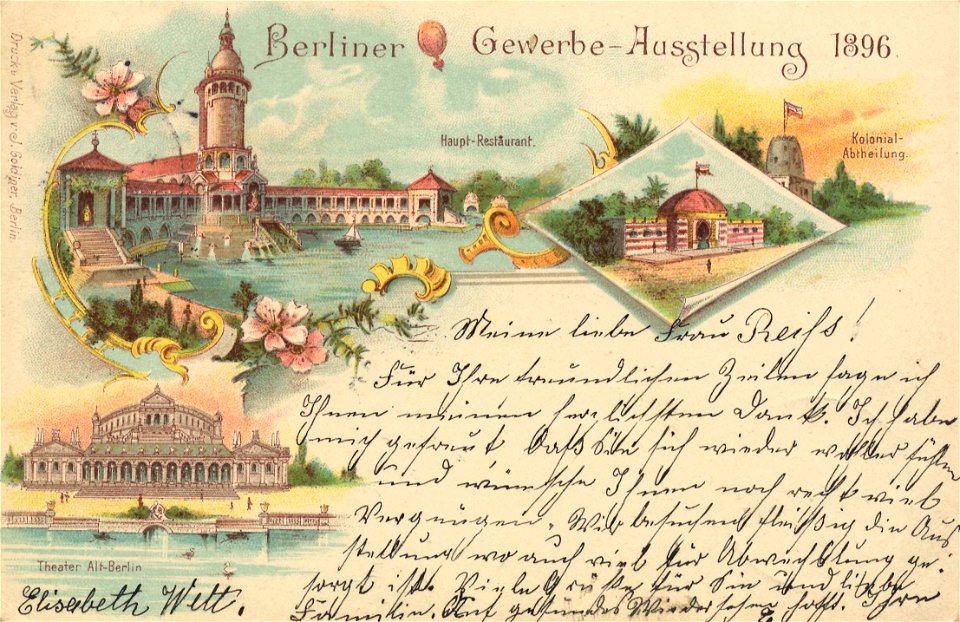 Berliner Gewerbe-Ausstellung 1896.
Haupt-Restaurant.
Kolonial-
Abtheilung.
Druck u. Verlag v. J. Goldiner, Berlin
Meine liebe Frau Reiss!
Für Ihre freundlichen Zeilen sage ich
Ihnen meinen herzlichsten Dank. Ich habe
mich gefreut daß Sie sich wieder wohler fühlen
und wünsche Ihnen noch recht viel
Vergnügen. Wir besuchen fleißig die Aus
stellung wo auch viel für Abwechslung ge-
sorgt ist. Viele Grüße für Sie und liebe
Familie. Auf gesundes Wiedersehen hofft Ihre
Theater Alt-Berlin
Elisabeth Welt.